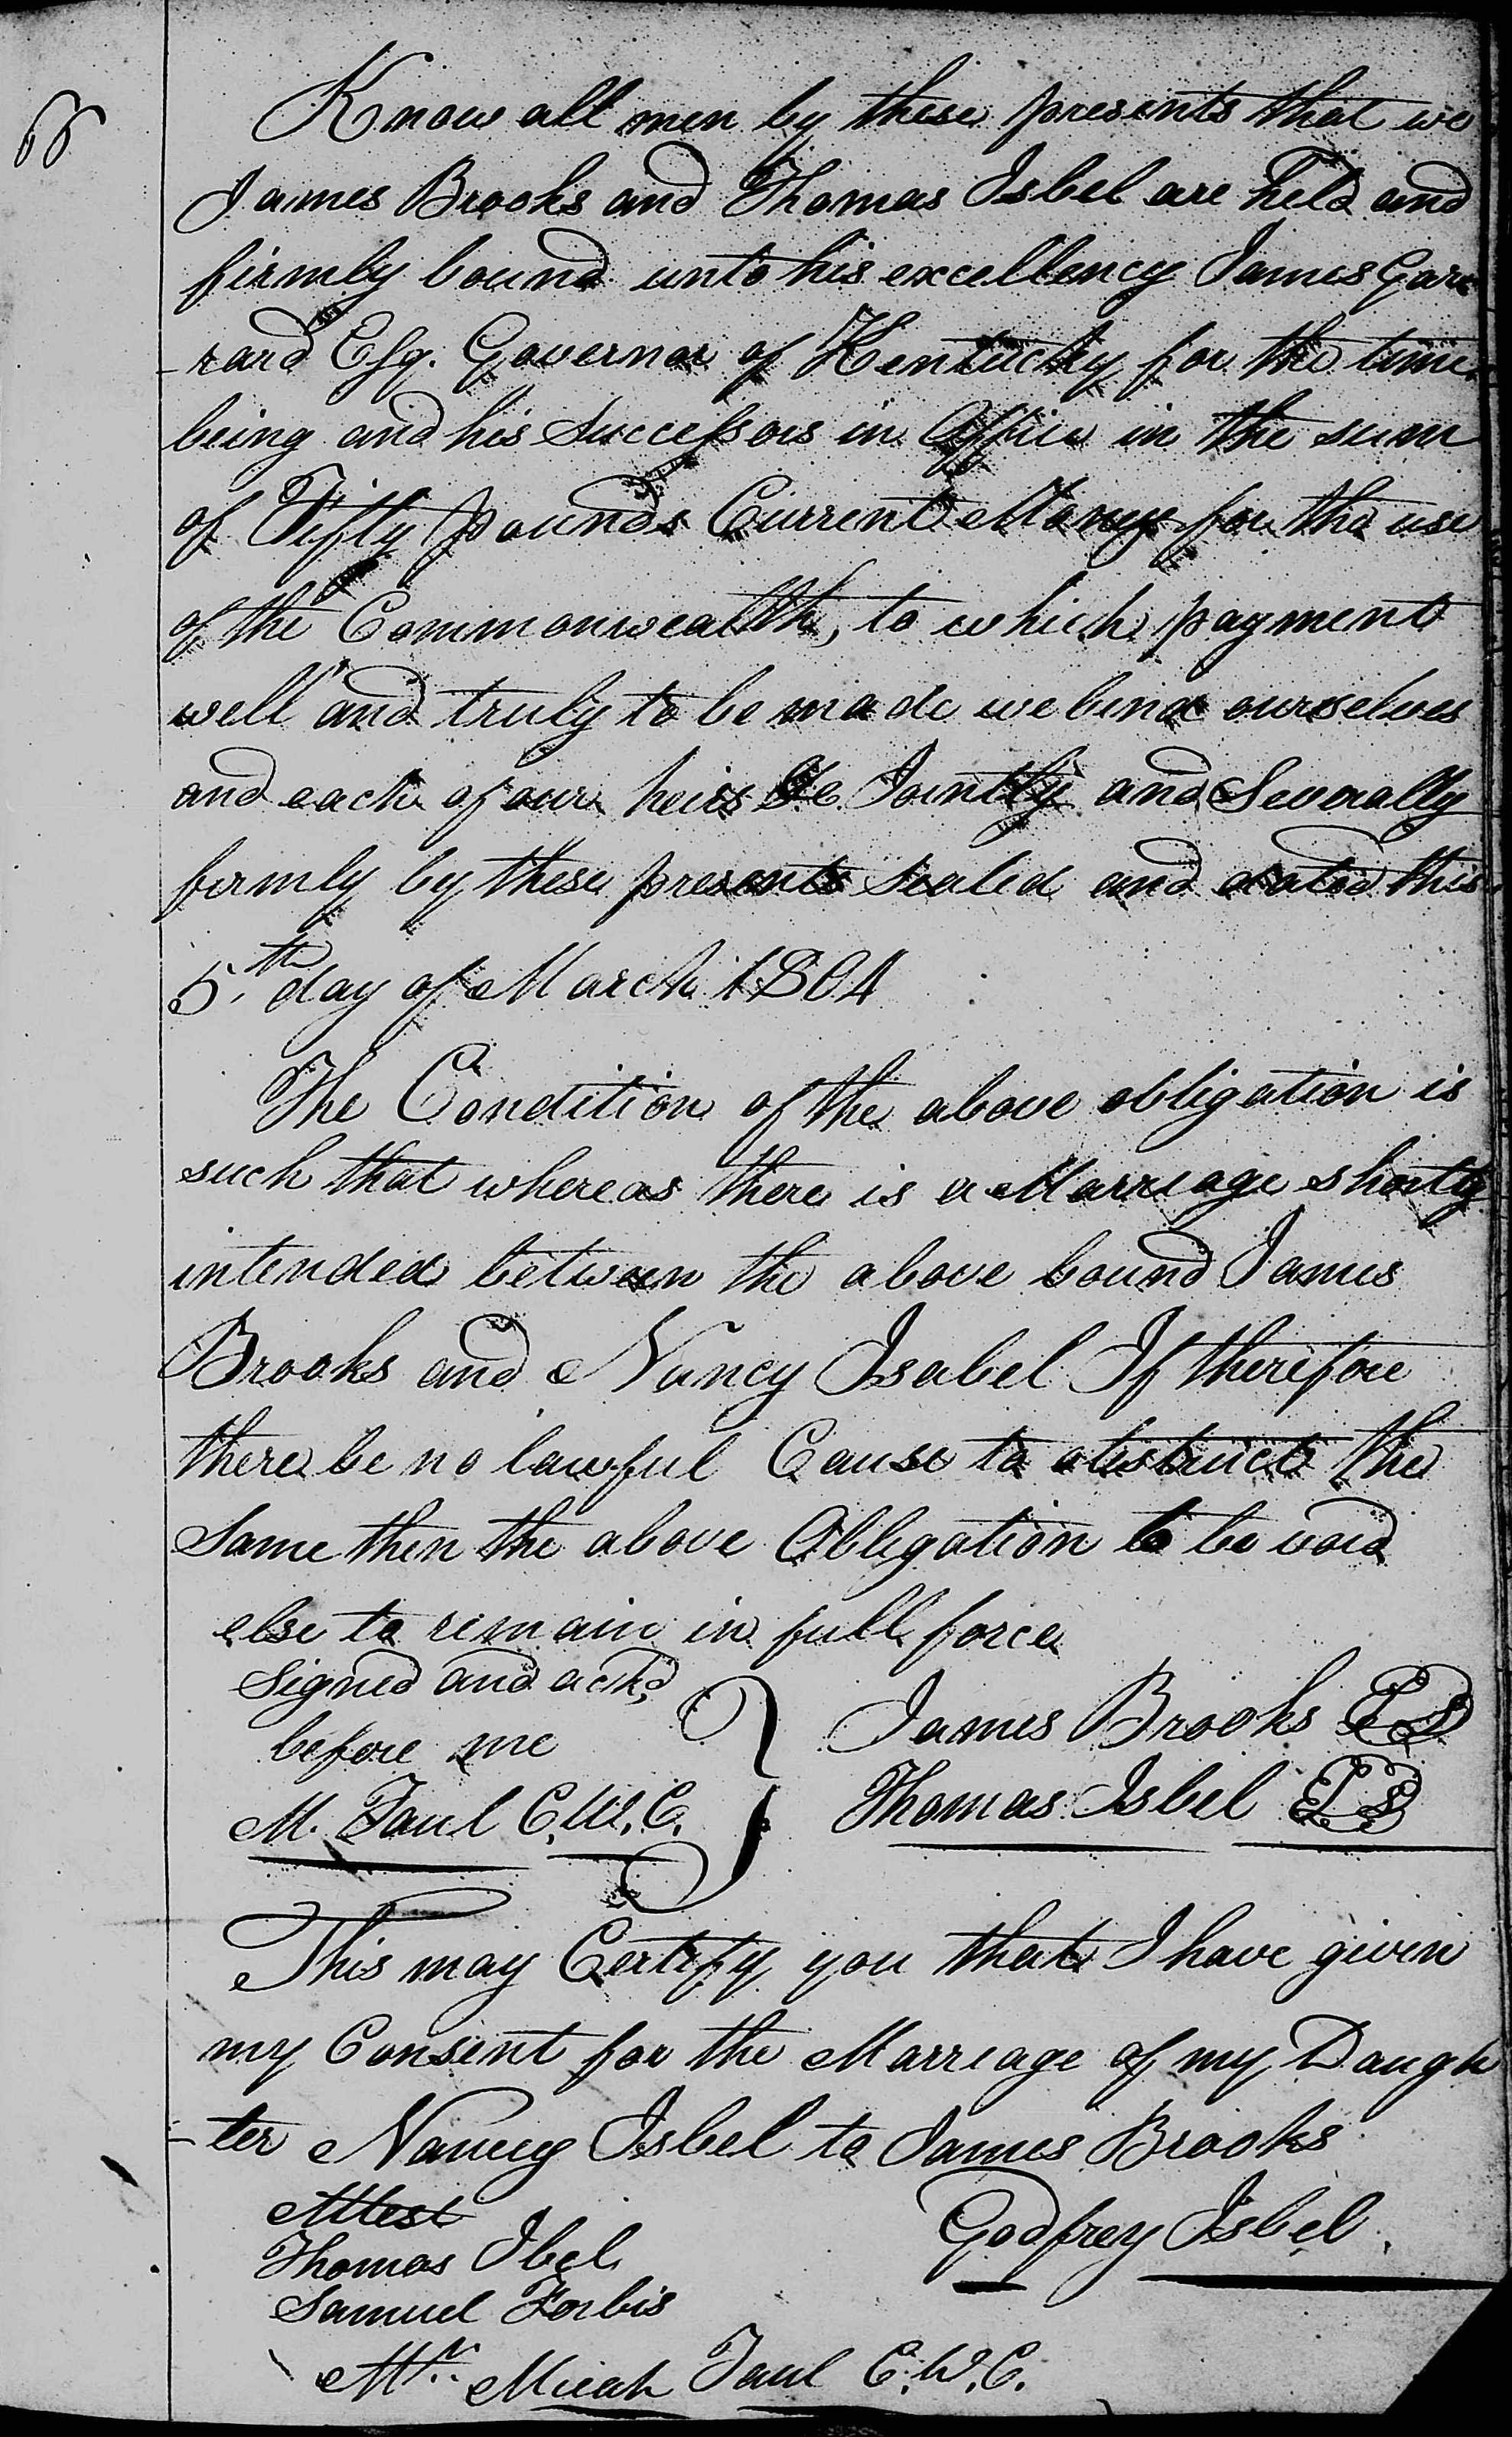 66
Know all men by these presents that we
James Brooks and Thomas Isbel are held and
firmly bound unto his excellency James Gar-
-rard Esq. Governor of Kentucky for the time
being and his Successors in Office in the sum
of Fifty pounds Current Money for the use
of the Commonwealth, to which payment
well and truly to be made we bind ourselves
and each of our heirs &c Jointly and Severally
firmly by these presents sealed and dated this
5th day of March 1804
The Condition of the above obligation is
such that whereas there is a Marriage shortly
intended between the above bound James
Brooks and Nancy Isabel If therefore
there be no lawful Cause to obstruct the
Same then the above Obligation to be void
else to remain in full force
Signed and ackd
before me
M. Taul C.W.C.
James Brooks LS
Thomas Isbel LS
This may Certify you that I have given
my Consent for the Marriage of my Daugh
-ter Nancy Isbel to James Brooks
Attest
Godfrey Isbel
Thomas Ibel
Samuel Forbis
Mr. Micah Taul C.W.C.